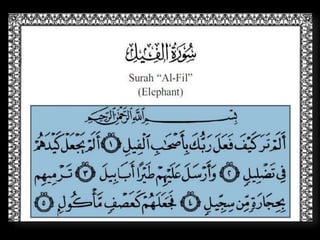 سُورَةُ الْفِيلِ
Surah “Al-Fil”
(Elephant)
بِسْمِ اللَّهِ الرَّحْمَٰنِ الرَّحِيمِ
أَلَمْ تَرَ كَيْفَ فَعَلَ رَبُّكَ بِأَصْحَابِ الْفِيلِ ١ أَلَمْ يَجْعَلْ كَيْدَهُمْ
فِي تَضْلِيلٍ ٢ وَأَرْسَلَ عَلَيْهِمْ طَيْرًا أَبَابِيلَ ٣ تَرْمِيهِمْ
بِحِجَارَةٍ مِنْ سِجِّيلٍ ٤ فَجَعَلَهُمْ كَعَصْفٍ مَأْكُولٍ ٥